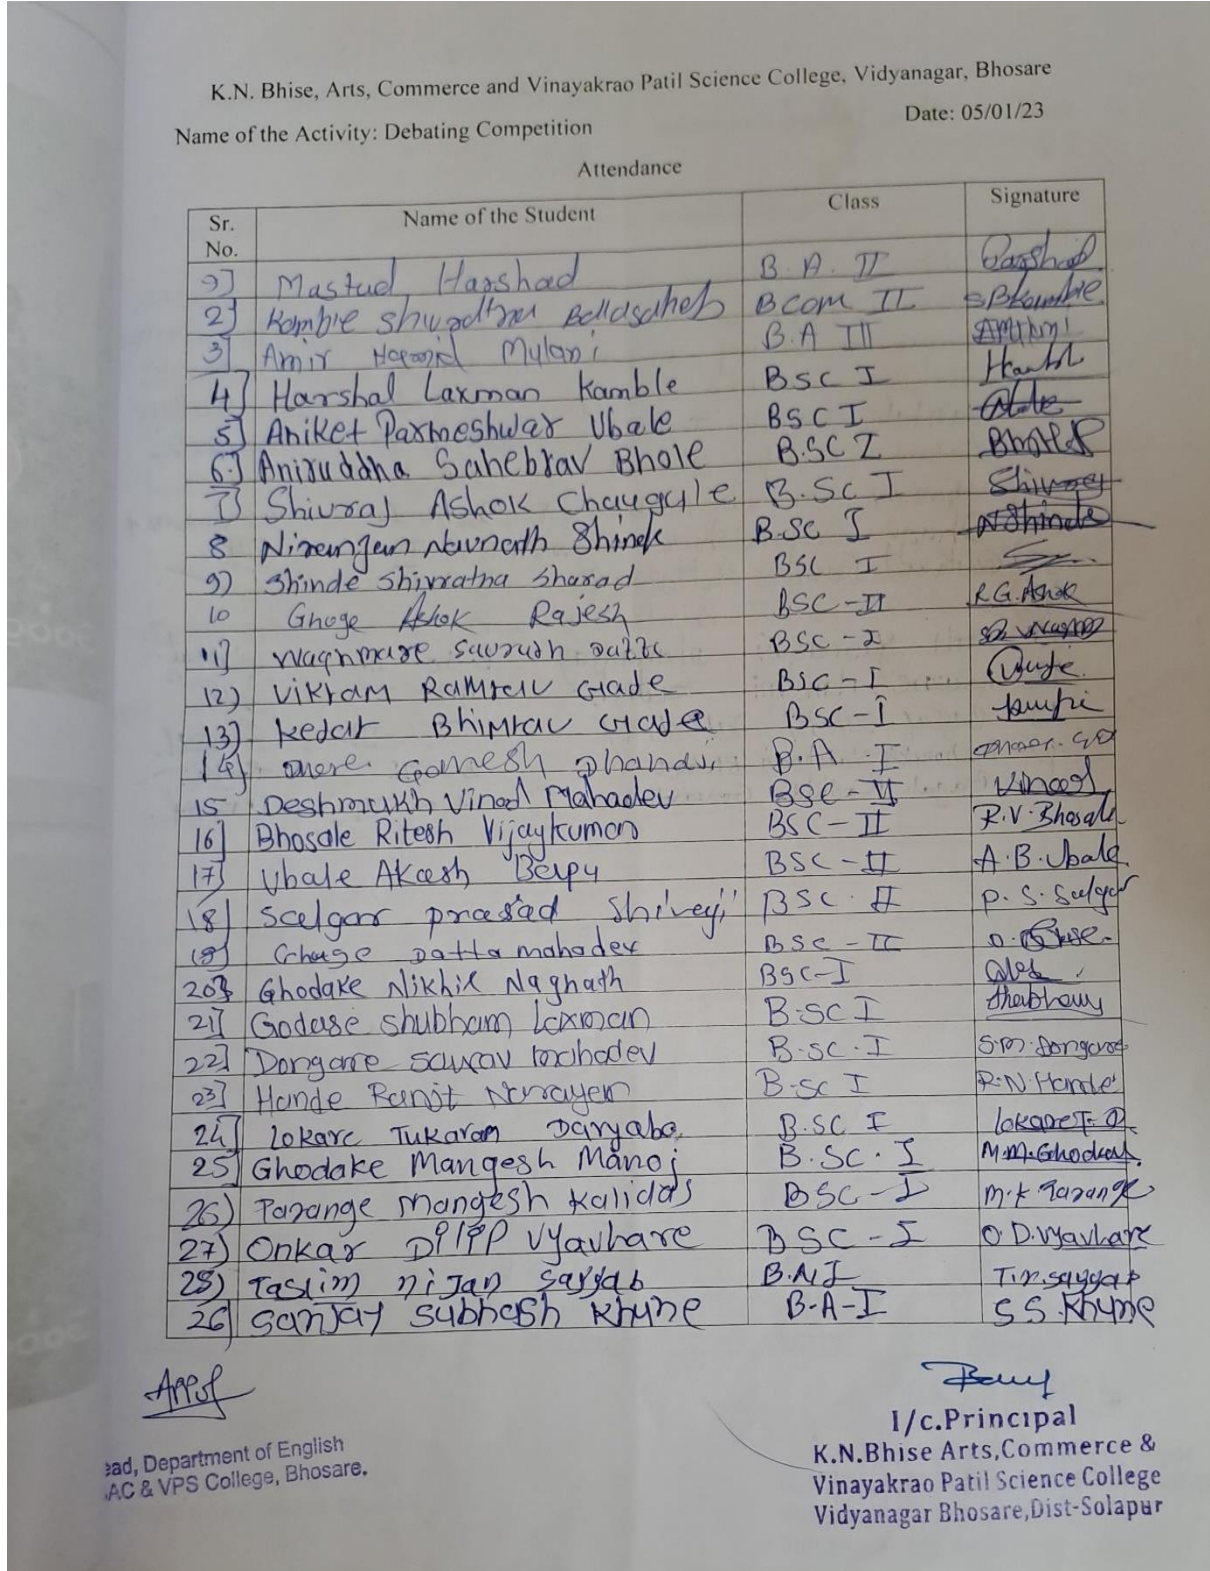 K.N. Bhise, Arts, Commerce and Vinayakrao Patil Science College, Vidyanagar, Bhosare
Name of the Activity: Debating Competition Date: 05/01/23
Attendance
Sr. No. Name of the Student Class Signature
1] Mastud Harshad B.A. II
2] Kamble Ballasaheb BCOM II SBKamble
3] Amir Mulani B.A III
4] Harshal Laxman Kamble BSC I
5] Aniket Parmeshwar Ubale BSC I
6.] Aniruddha Sahebrav Bhole B.SC I
7] Shivraj Ashok Chaugule B.Sc I Shivraj
8 Niranjan Navnath Shinde B.SC I NShinde
9) Shinde Shivratna Sharad BSC I
10 Ghoge Ashok Rajesh BSC-II R.G.Ashok
11] Waghmare Saurash BSC-I
12) Vikram Ramrav Gade BSC-I
13) Kedar Bhimrav Gade BSC-I
14) Ganesh B.A. I
15 Deshmukh Vinod Mahadev BSC-II Vinod
16] Bhosale Ritesh Vijaykumar BSC-II R.V.Bhosale
17] Ubale Akash Bapu BSC-II A.B.Ubale.
18] Salgar prasad Shivaji BSC.II P.S.Salgar
19) Ghuge Datta mahadev BSC-II
20] Ghodake Nikhil Nagnath BSC-I
21] Godase Shubham Laxman B.SC I Shubham
22] Dongare Saurav Mahadev B.SC.I S.M.Dongare
23] Hande Ranjit Narayan B.SC I R.N.Hande
24] Lokare Tukaram Daryaba B.SC I Lokare T.D.
25] Ghodake Mangesh Manoj B.SC.I M.M.Ghodake
26) Parange Mangesh Kalidas BSC-I M.K Parange
27) Onkar Dilip Vyavhare BSC-I O.D.Vyavhare
28) Taslim nijan sayyab B.A I T.N.sayyab
26] Sanjay Subhash Khune B-A-I S S.Khune
I/c.Principal
ead, Department of English K.N.Bhise Arts,Commerce &
AC & VPS College, Bhosare. Vinayakrao Patil Science College
Vidyanagar Bhosare,Dist-Solapur